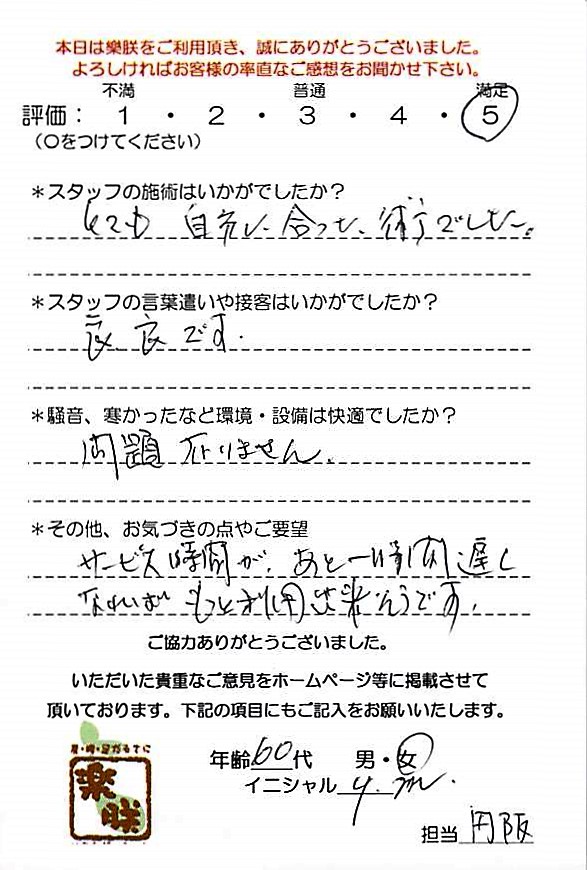 本日は樂朕をご利用頂き、誠にありがとうございました。
よろしければお客様の率直なご感想をお聞かせ下さい。
不満 普通 満足
評価： 1 ・ 2 ・ 3 ・ 4 ・ 5
（○をつけてください）
＊スタッフの施術はいかがでしたか？
とても 自分に 合った、術でした。
＊スタッフの言葉遣いや接客はいかがでしたか？
良です.
＊騒音、寒かったなど環境・設備は快適でしたか？
問題 ありません.
＊その他、お気づきの点やご要望
サービス時間が、あと一時間 遅く
なれば もっと利用出来そうです.
ご協力ありがとうございました。
いただいた貴重なご意見をホームページ等に掲載させて
頂いております。下記の項目にもご記入をお願いいたします。
樂朕
年齢60代 男・女
イニシャル Y.
担当 円阪